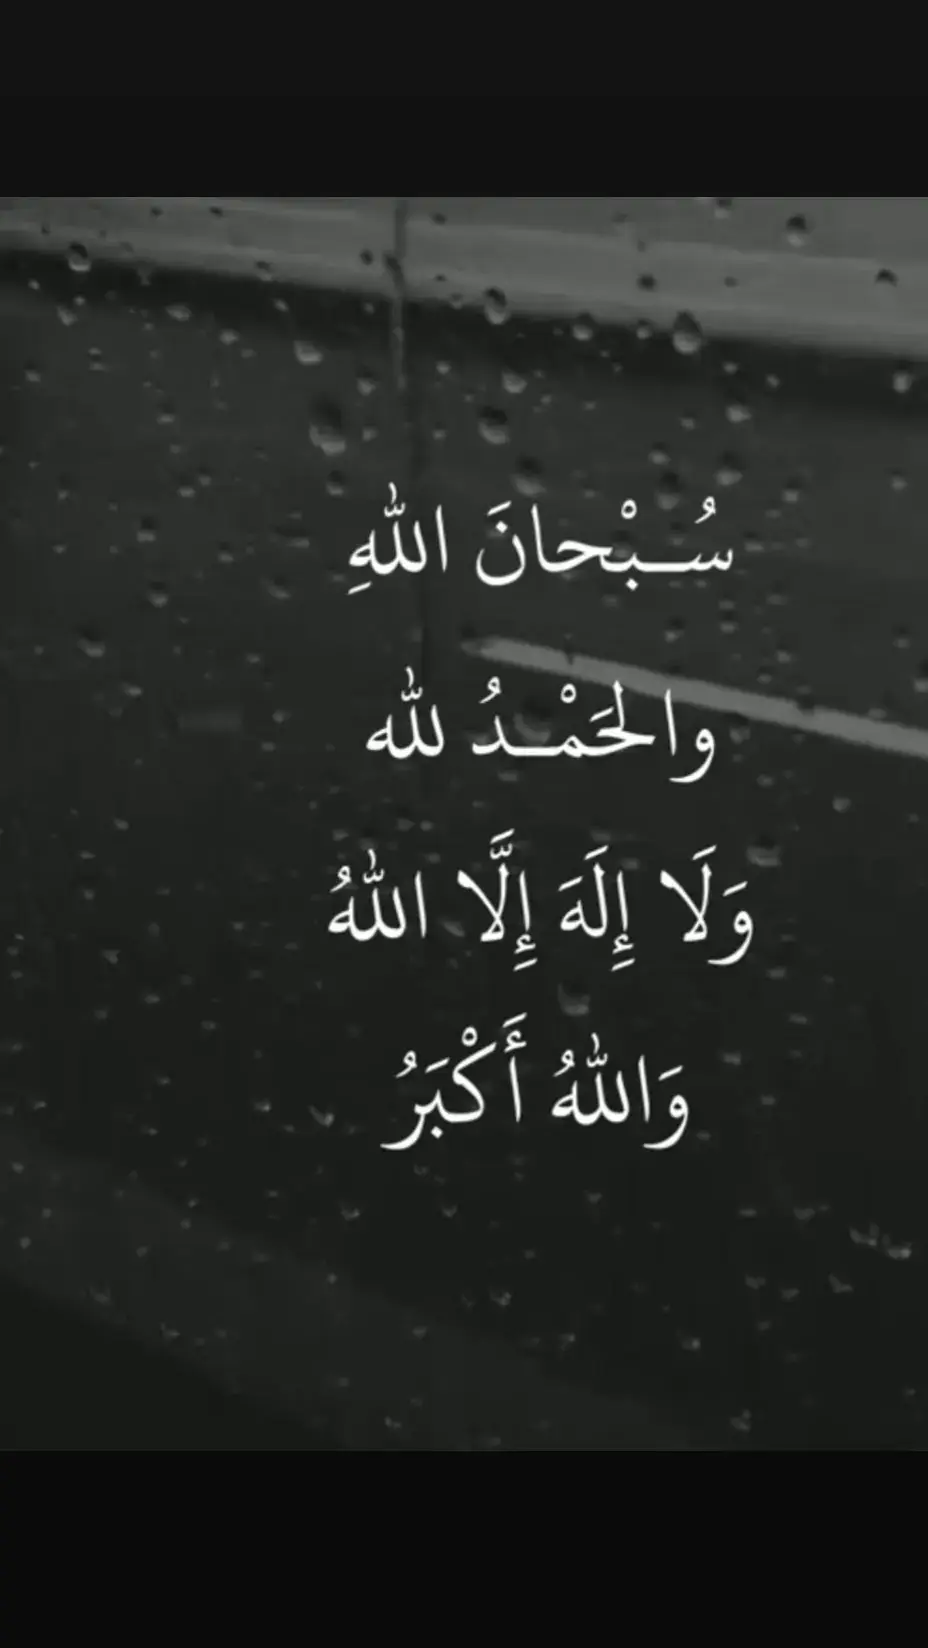 سُـبْحانَ اللّٰهِ
والحَمْـدُ للّٰه
وَلَا إِلَهَ إِلَّا اللّٰهُ
وَاللّٰهُ أَكْبَرُ